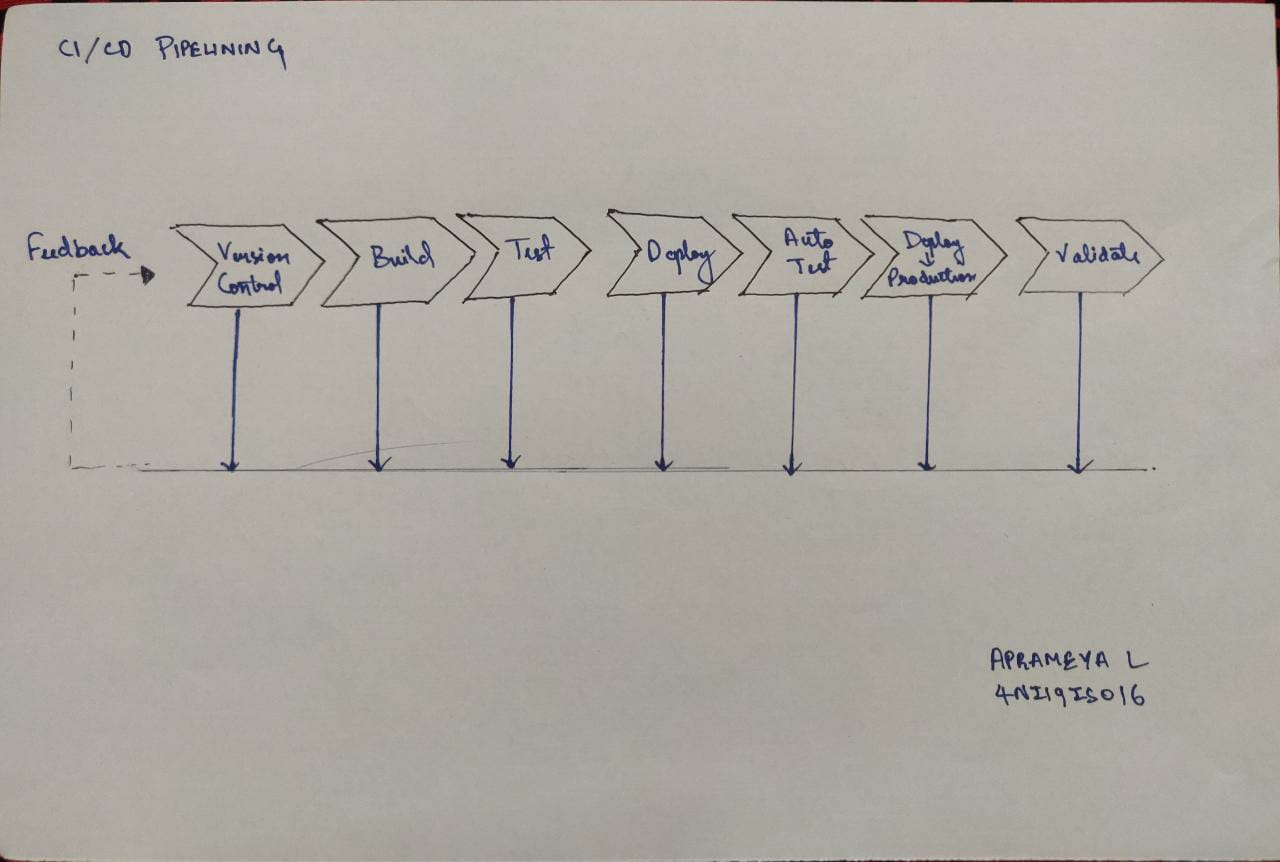 CI/CD PIPELINING
Feedback
Version
Control
Build
Test
Deploy
Auto
Test
Deploy
↓
Production
Validate
APRAMEYA L
4NI19IS016